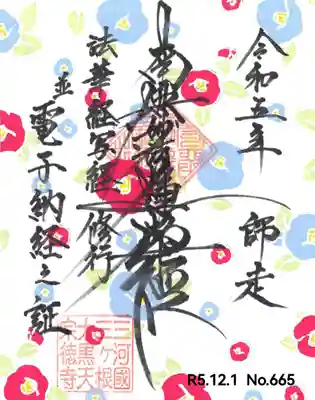 令和五年
師走
南無妙法蓮華経
法華経写経修行
並電子納経之証
三河國
三ヶ根
大馬天
宗徳寺
R5.12.1 No.665